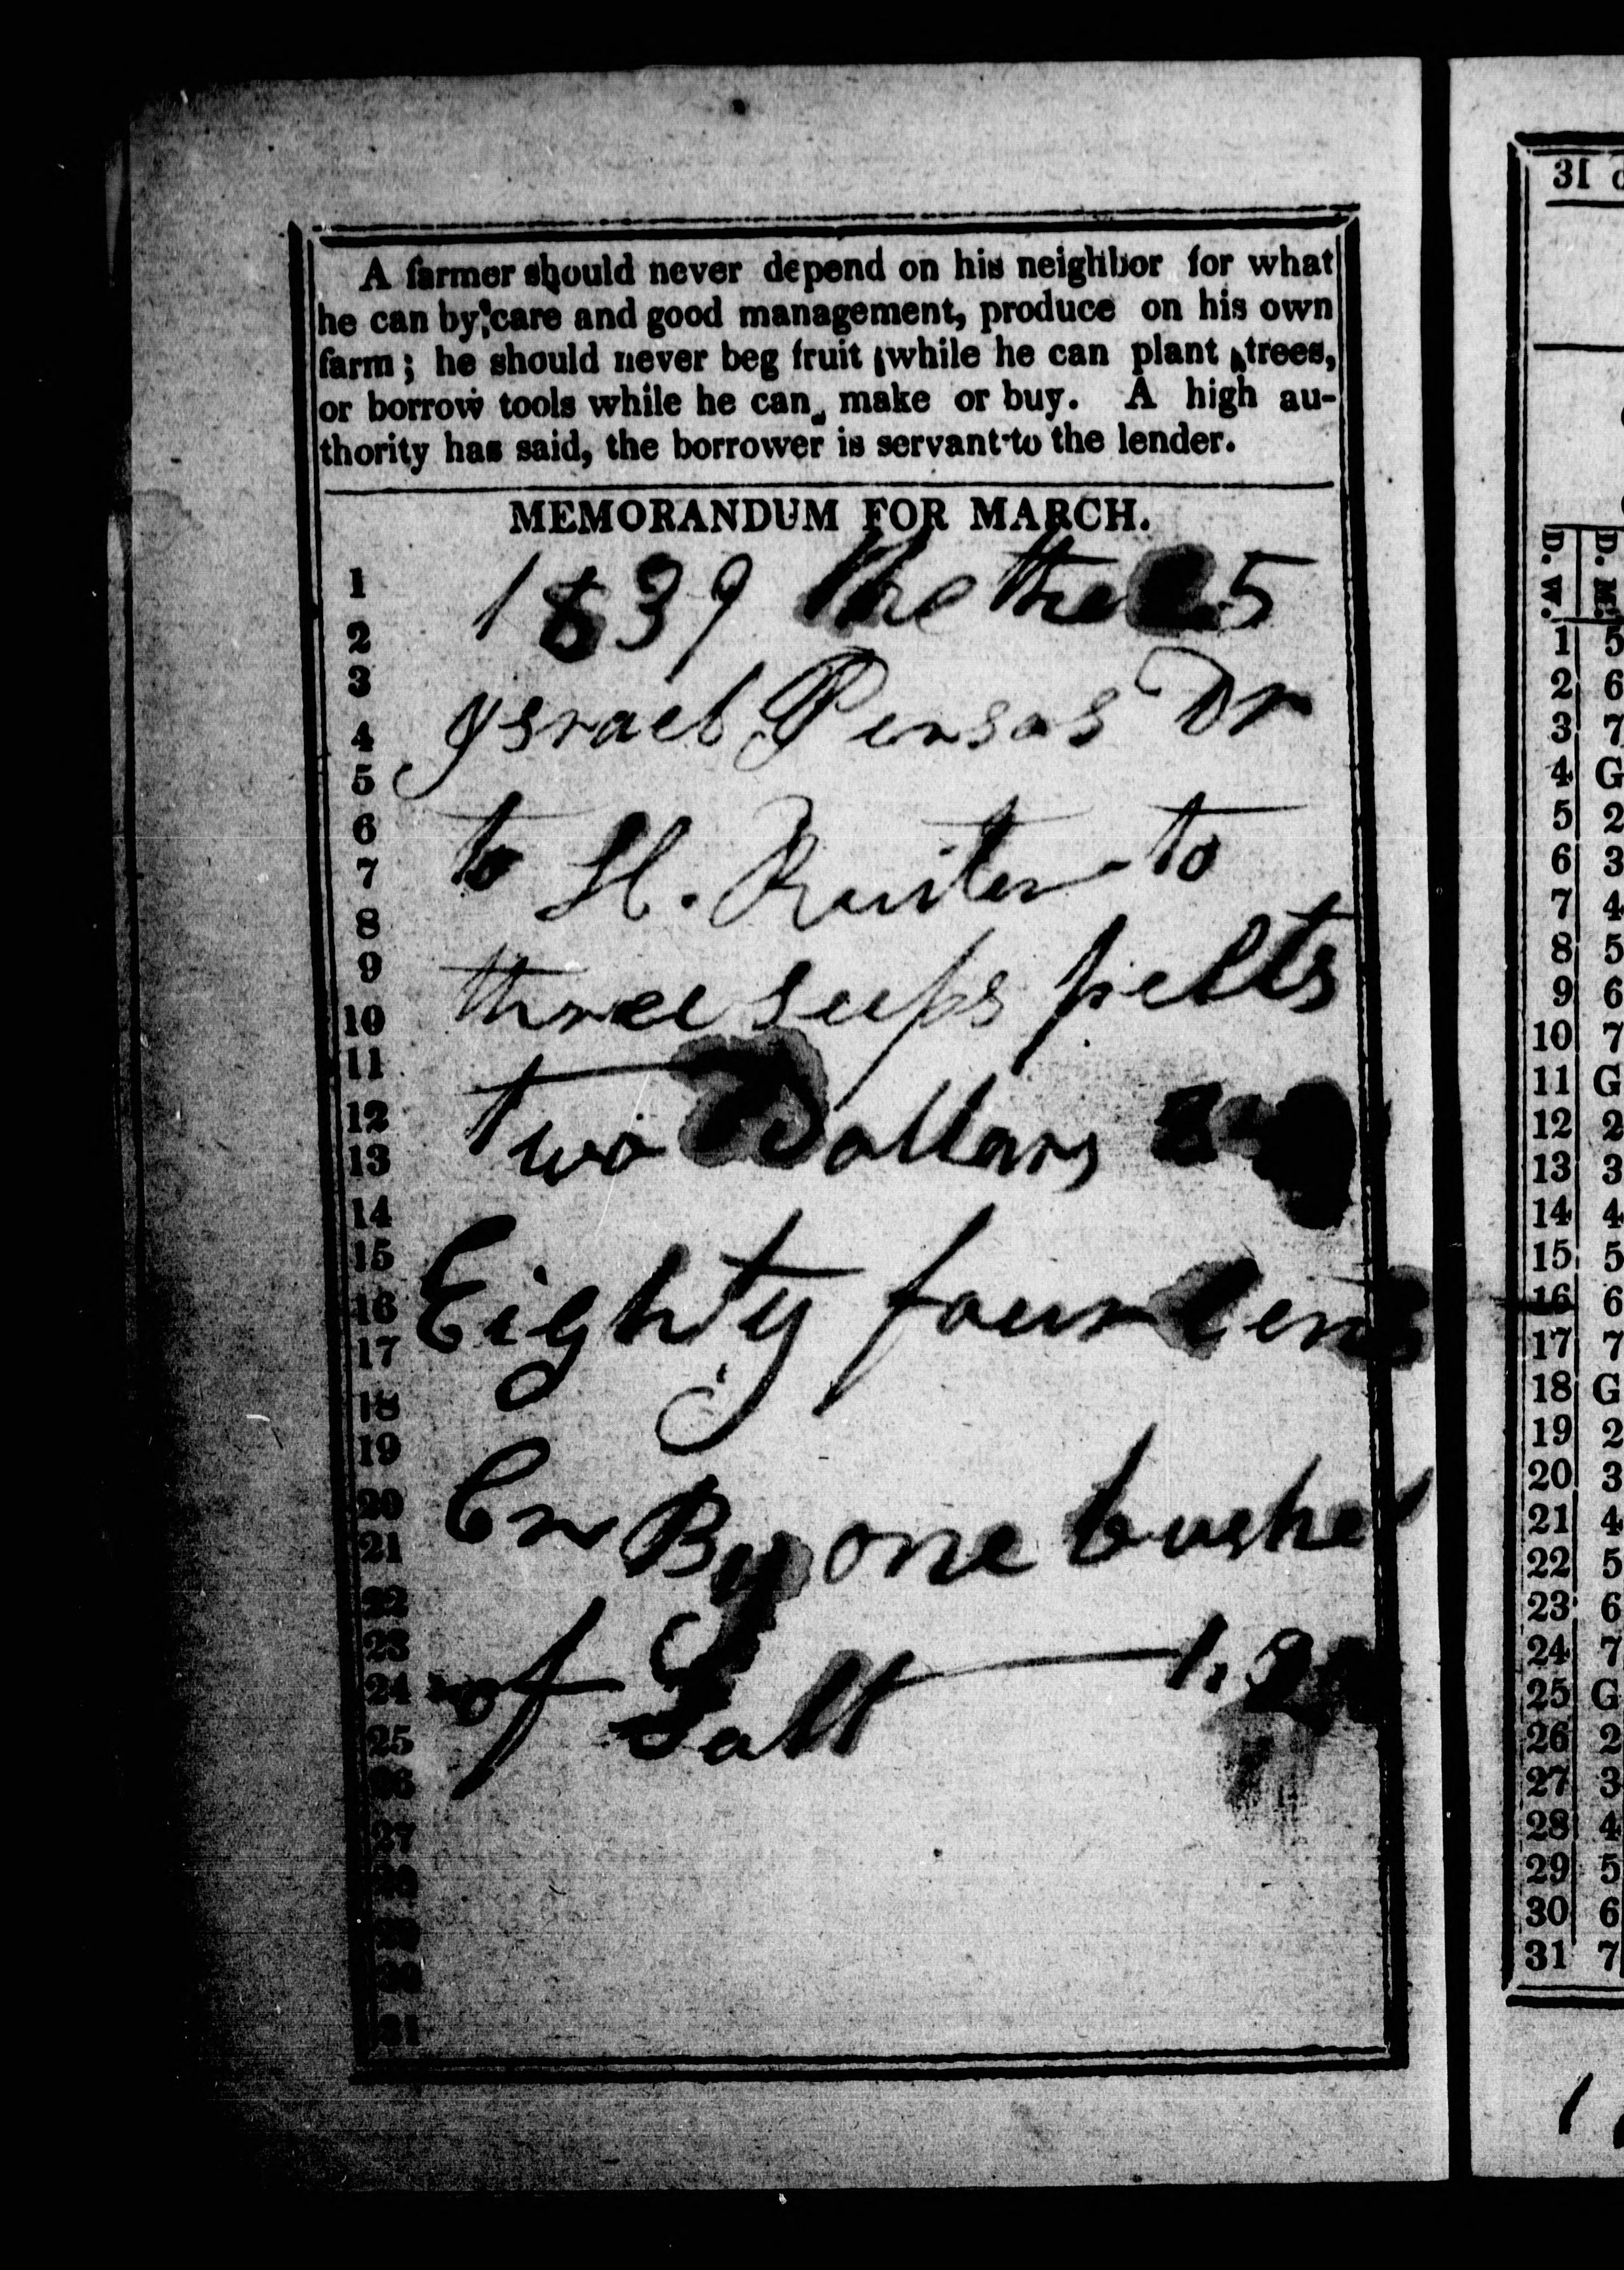 A farmer should never depend on his neighbor for what
he can by care and good management, produce on his own
farm; he should never beg fruit while he can plant trees,
or borrow tools while he can make or buy. A high au-
thority has said, the borrower is servant to the lender.
MEMORANDUM FOR MARCH.
1
2
3
4
5
6
7
8
9
10
11
12
13
14
15
16
17
18
19
20
21
22
23
24
25
26
27
28
29
30
31
1839 the 25
Israel Dr
to H. Ruiter to
three seeps pelts
two Dollars
Eighty four Cents
Cr By one bushel
of Salt
31
D. W.
D. M.
1 5
2 6
3 7
4 G
5 2
6 3
7 4
8 5
9 6
10 7
11 G
12 2
13 3
14 4
15 5
16 6
17 7
18 G
19 2
20 3
21 4
22 5
23 6
24 7
25 G
26 2
27 3
28 4
29 5
30 6
31 7